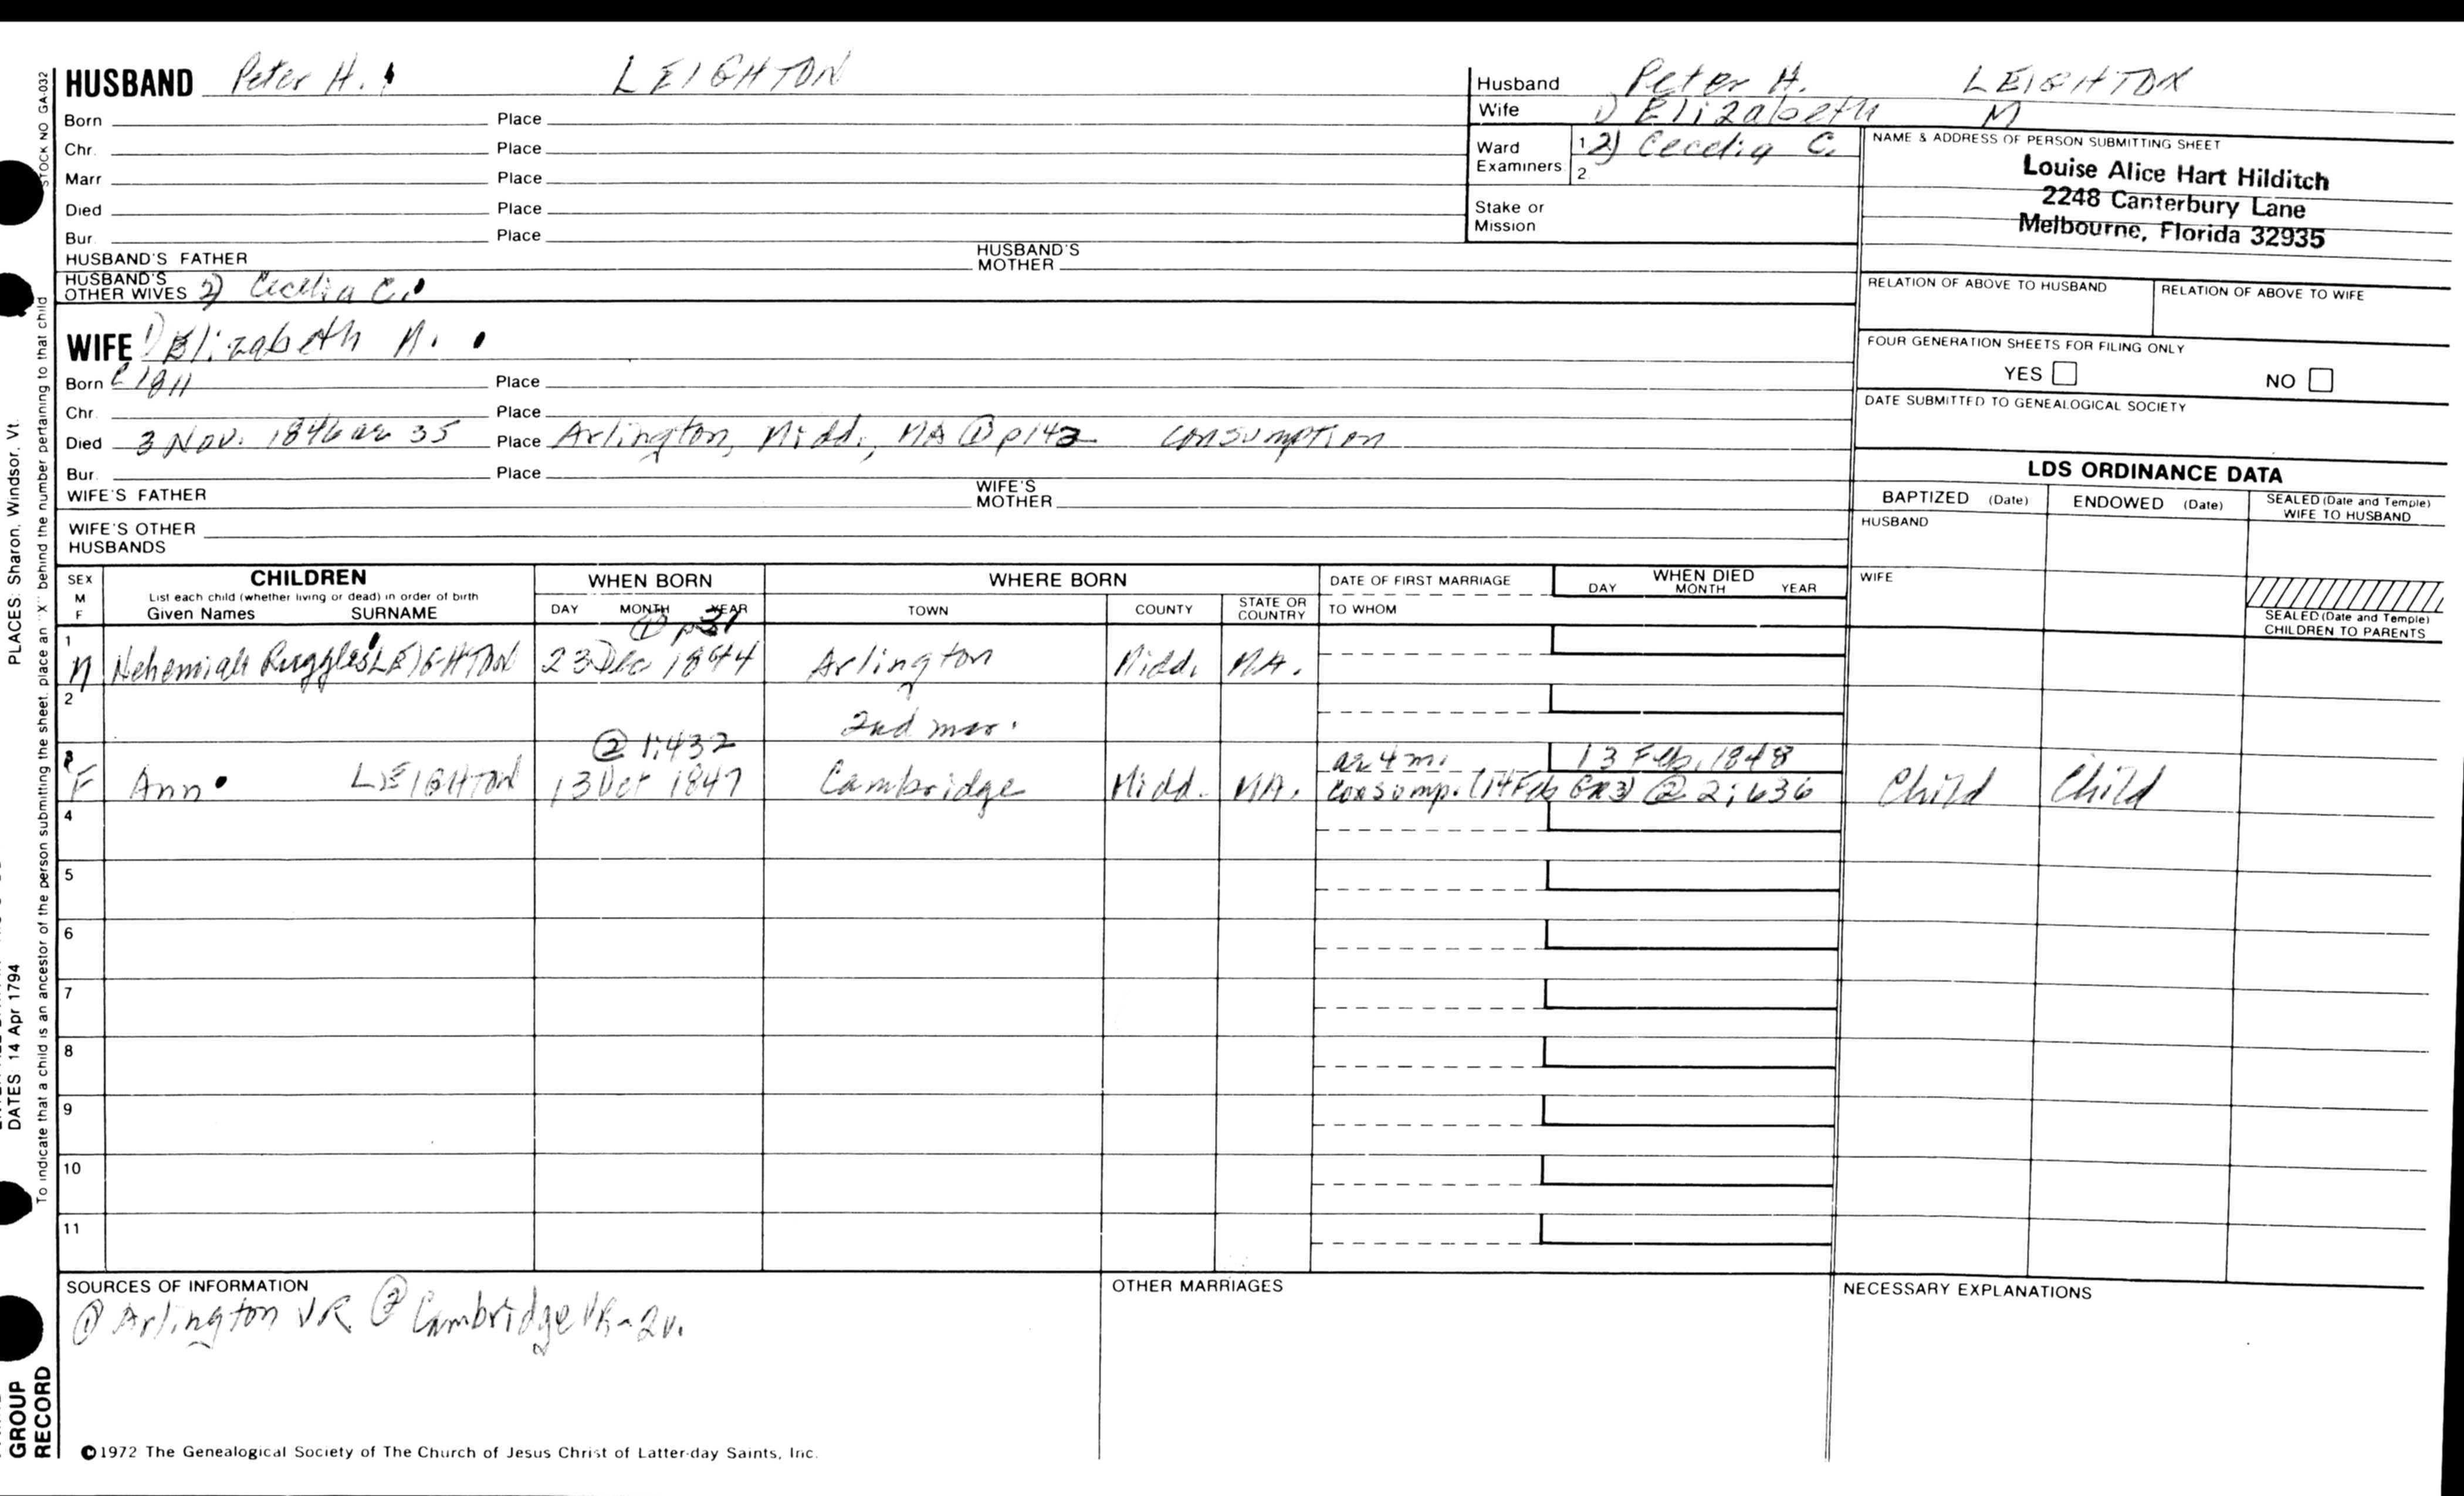 HUSBAND Peter H. LEIGHTON
Born Place
Chr. Place
Marr Place
Died Place
Bur. Place
HUSBAND'S FATHER HUSBAND'S MOTHER
HUSBAND'S OTHER WIVES 2) Cecelia C.
WIFE 1) Elizabeth M.
Born C 1811 Place
Chr. Place
Died 3 Nov. 1846 ae 35 Place Arlington, Midd., MA ① p142 consumption
Bur. Place
WIFE'S FATHER WIFE'S MOTHER
WIFE'S OTHER HUSBANDS
Husband Peter H. LEIGHTON
Wife 1) Elizabeth M
Ward Examiners 1 2) Cecelia C.
2.
Stake or Mission
NAME & ADDRESS OF PERSON SUBMITTING SHEET
Louise Alice Hart Hilditch
2248 Canterbury Lane
Melbourne, Florida 32935
RELATION OF ABOVE TO HUSBAND RELATION OF ABOVE TO WIFE
FOUR GENERATION SHEETS FOR FILING ONLY
YES NO
DATE SUBMITTED TO GENEALOGICAL SOCIETY
LDS ORDINANCE DATA
BAPTIZED (Date) ENDOWED (Date) SEALED (Date and Temple) WIFE TO HUSBAND
HUSBAND
WIFE
SEALED (Date and Temple) CHILDREN TO PARENTS
SEX M F CHILDREN WHEN BORN WHERE BORN DATE OF FIRST MARRIAGE WHEN DIED
List each child (whether living or dead) in order of birth
Given Names SURNAME DAY MONTH YEAR TOWN COUNTY STATE OR COUNTRY TO WHOM DAY MONTH YEAR
① p31
1 M Nehemiah Ruggles LEIGHTON 23 Dec 1844 Arlington Midd. MA.
2
2nd mar.
② 1:432 ae 4 m. 13 Feb. 1848
F Ann LEIGHTON 13 Oct 1847 Cambridge Midd. MA. consump. (14 Feb GR3) ② 2:636 Child Child
4
5
6
7
8
9
10
11
SOURCES OF INFORMATION OTHER MARRIAGES NECESSARY EXPLANATIONS
① Arlington VR ② Cambridge VR-2v.
©1972 The Genealogical Society of The Church of Jesus Christ of Latter-day Saints, Inc.
STOCK NO GA-032
To indicate that a child is an ancestor of the person submitting the sheet, place an "X" behind the number pertaining to that child
PLACES: Sharon, Windsor, Vt.
DATES 14 Apr 1794
GROUP
RECORD